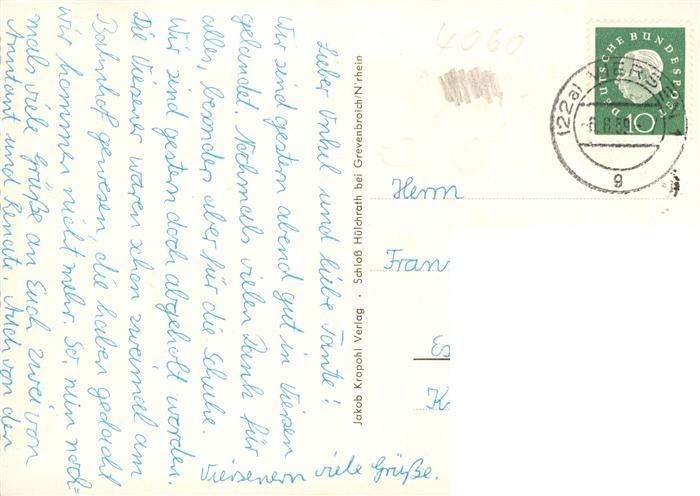 Lieber Onkel und liebe Tante!
Wir sind gestern abend gut in Viersen
gelandet. Nochmals vielen Dank für
alles, besonders aber für die Schuhe.
Wir sind gestern doch abgeholt worden.
Die Viersener waren schon zweimal am
Bahnhof gewesen, die haben gedacht
wir kommen nicht mehr. So, nun noch=
mals viele Grüße an Euch zwei von
und Renate. Auch von den
Viersenern viele Grüße.
Jakob Krapohl Verlag · Schloß Hülchrath bei Grevenbroich/N'rhein
4060
DEUTSCHE BUNDESPOST
10
(22a) VIERSEN 1
-6.8.59-
g
Herrn
Fran
Es
K